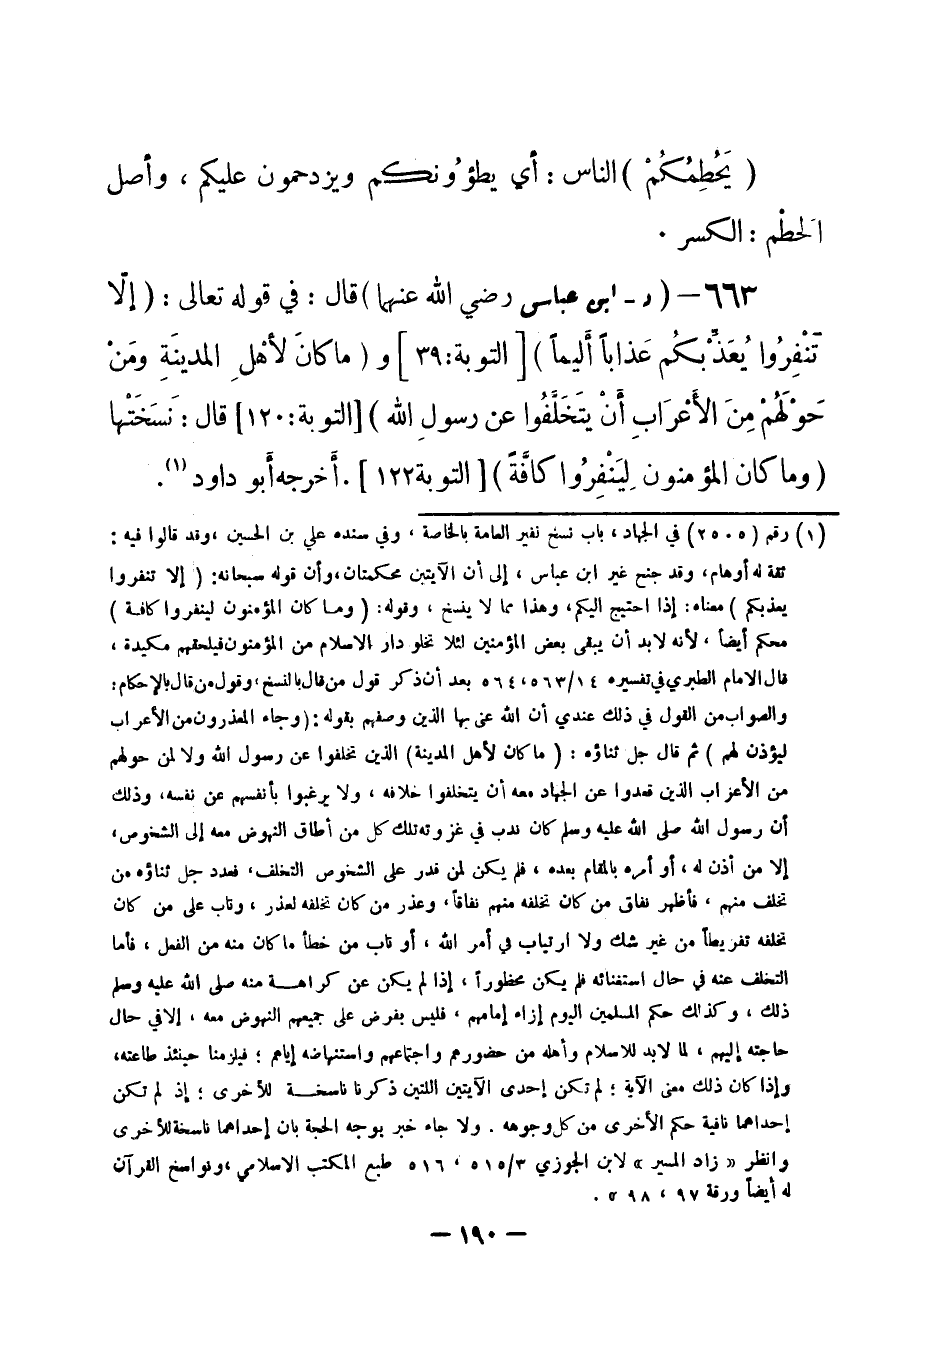 ( يَحْطِمُكُمْ ) الناس : أي يطؤُونكم ويزدحمون عليكم ، وأصل
الحَطْم : الكسر .
٦٦٣ – ( د - ابن عباس رضي الله عنهما ) قال : في قوله تعالى : ( إلَّا
تَنْفِرُوا يُعَذِّبْكم عَذاباً أَليماً ) [ التوبة : ٣٩ ] و ( ماكانَ لأهْلِ المدينَةِ ومَنْ
حَوْلَهُمْ مِنَ الأَعْرَابِ أَنْ يَتَخَلَّفُوا عن رسولِ الله ) [التوبة : ١٢٠] قال : نَسَخَتْها
( وما كان المؤمنون لِيَنْفِرُوا كافَّةً ) [ التوبة ١٢٢ ] . أَخرجه أَبو داود (١) .
(١) رقم (٢٥٠٥) في الجهاد ، باب نسخ نفير العامة بالخاصة ، وفي سنده علي بن الحسين ، وقد قالوا فيه :
ثقة له أوهام، وقد جنح غير ابن عباس ، إلى أن الآيتين محكمتان، وأن قوله سبحانه: ( إلا تنفروا
يعذبكم ) معناه: إذا احتيج اليكم، وهذا مما لا ينسخ ، وقوله: ( وما كان المؤمنون لينفروا كافة )
محكم أيضاً ، لأنه لابد أن يبقى بعض المؤمنين لئلا تخلو دار الاسلام من المؤمنون فيلحقهم مكيدة ،
قال الامام الطبري في تفسيره ٥٦٣/١٤، ٥٦٤ بعد أن ذكر قول من قال بالنسخ، وقول من قال بالإحكام:
والصواب من القول في ذلك عندي أن الله عنى بها الذين وصفهم بقوله : ( وجاء المعذرون من الأعراب
ليؤذن لهم ) ثم قال جل ثناؤه : ( ما كان لأهل المدينة) الذين تخلفوا عن رسول الله ولا لمن حولهم
من الأعراب الذين قعدوا عن الجهاد معه أن يتخلفوا خلافه ، ولا يرغبوا بأنفسهم عن نفسه، وذلك
أن رسول الله صلى الله عليه وسلم كان ندب في غزوته تلك كل من أطاق النهوض معه إلى الشخوص،
إلا من أذن له ، أو أمره بالمقام بعده ، فلم يكن لمن قدر على الشخوص التخلف، فعدد جل ثناؤه من
تخلف منهم ، فأظهر نفاق من كان تخلفه منهم نفاقاً، وعذر من كان تخلفه لعذر ، وتاب على من كان
تخلفه تفريطاً من غير شك ولا ارتياب في أمر الله ، أو تاب من خطأ ما كان منه من الفعل ، فأما
التخلف عنه في حال استغنائه فلم يكن محظوراً ، إذا لم يكن عن كراهة منه صلى الله عليه وسلم
ذلك ، وكذلك حكم المسلمين اليوم إزاء إمامهم ، فليس بفرض على جميعهم النهوض معه ، إلا في حال
حاجته إليهم ، لما لابد للاسلام وأهله من حضورهم واجتماعهم واستنهاضه إياهم ؛ فيلزمنا حينئذ طاعته،
وإذا كان ذلك معنى الآية ؛ لم تكن إحدى الآيتين اللتين ذكرنا ناسخة للأخرى ؛ إذ لم تكن
إحداهما نافية حكم الأخرى من كل وجوهه . ولا جاء خبر يوجه الحجة بان إحداهما ناسخة للأخرى
وانظر « زاد المسير » لابن الجوزي ٥١٥/٣ ، ٥١٦ طبع المكتب الاسلامي ، ونواسخ القرآن
له أيضاً ورقة ٩٧ ، ٩٨ .
– ١٩٠ –